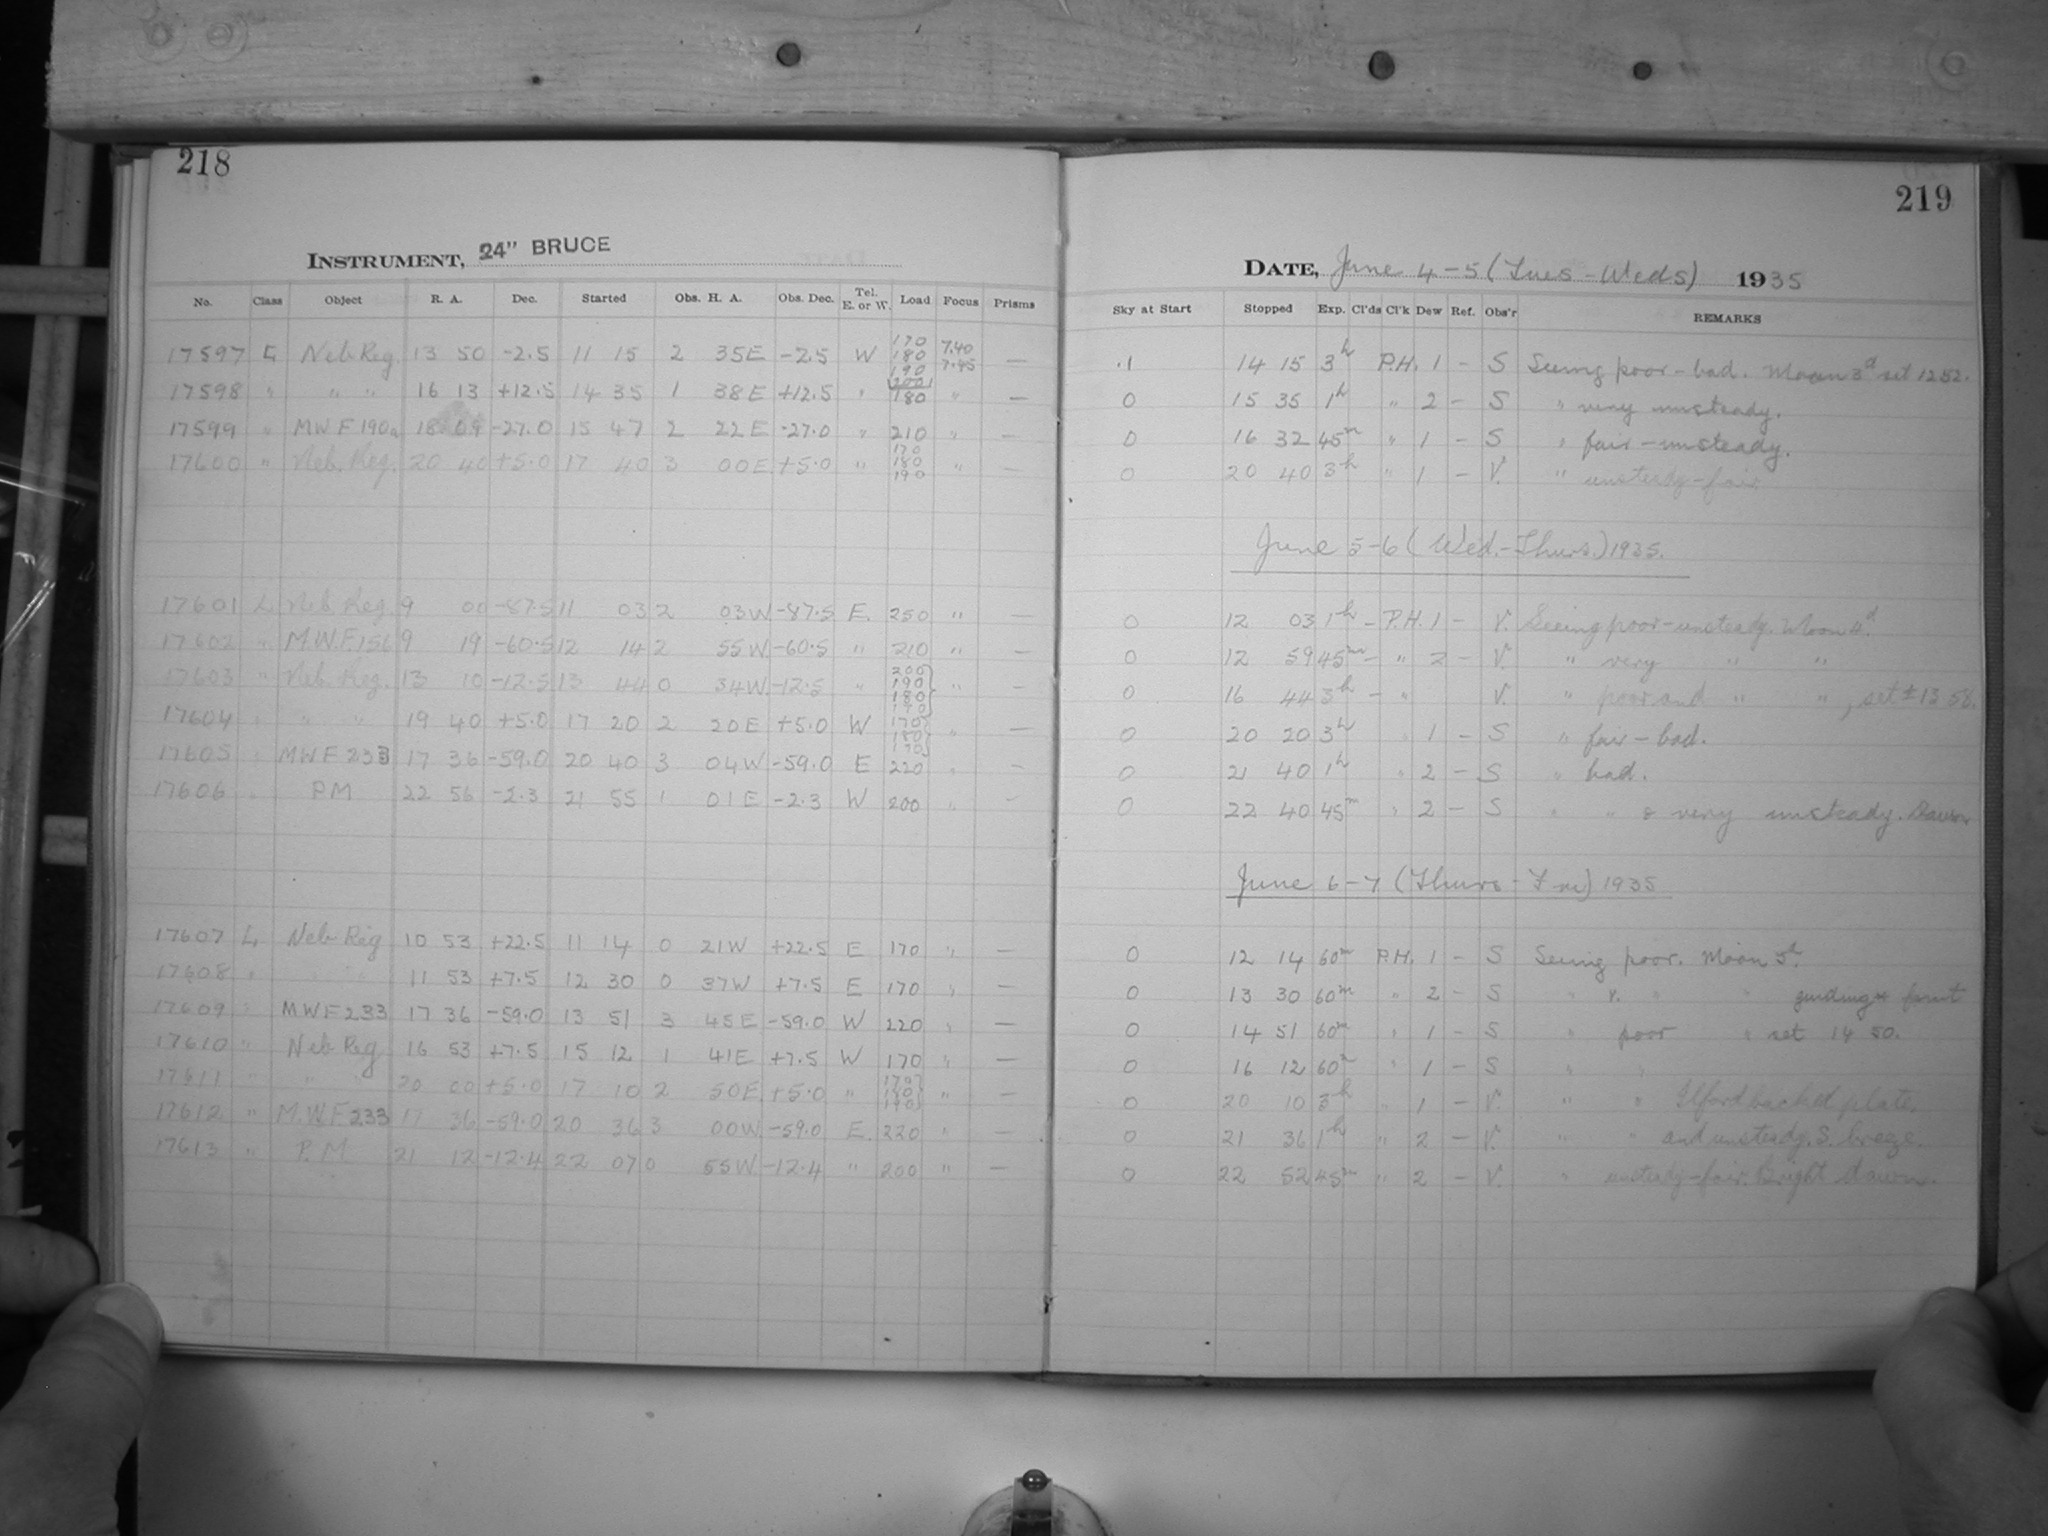 218
INSTRUMENT, 24" BRUCE
No. Class Object R. A. Dec. Started Obs. H. A. Obs. Dec. Tel. E. or W. Load Focus Prisms
17597 L Neb. Reg. 13 50 -2.5 11 15 2 35E -2.5 W 170 180 190 200 7.40 7.45 —
17598 " " " 16 13 +12.5 14 35 1 38E +12.5 " 180 " —
17599 " MWF190a 18 09 -27.0 15 47 2 22E -27.0 " 210 " —
17600 " Neb. Reg. 20 40 +5.0 17 40 3 00E +5.0 " 170 180 190 " —
17601 L Neb. Reg. 9 00 -87.5 11 03 2 03W -87.5 E. 250 " —
17602 " M.W.F. 9 19 -60.5 12 14 2 55W -60.5 " 210 " —
17603 " Neb. Reg. 13 10 -12.5 13 44 0 34W -12.5 " 200 190 180 170 " —
17604 " " " 19 40 +5.0 17 20 2 20E +5.0 W 170 180 190 " —
17605 " MWF233 17 36 -59.0 20 40 3 04W -59.0 E 220 " —
17606 " PM 22 56 -2.3 21 55 1 01E -2.3 W 200 " —
17607 L Neb Reg 10 53 +22.5 11 14 0 21W +22.5 E 170 " —
17608 " " " 11 53 +7.5 12 30 0 37W +7.5 E 170 " —
17609 " MWF233 17 36 -59.0 13 51 3 45E -59.0 W 220 " —
17610 " Neb Reg 16 53 +7.5 15 12 1 41E +7.5 W 170 " —
17611 " " " 20 00 +5.0 17 10 2 50E +5.0 " 170 180 190 " —
17612 " M.W.F233 17 36 -59.0 20 36 3 00W -59.0 E. 220 " —
17613 " P.M. 21 12 -12.4 22 07 0 55W -12.4 " 200 " —
219
DATE, June 4-5 (Tues-Weds) 1935
Sky at Start Stopped Exp. Cl'ds Cl'k Dew Ref. Obs'r REMARKS
.1 14 15 3h P.H. 1 - S Seeing poor-bad. Moon 3d set 1252.
0 15 35 1h " 2 - S " very unsteady.
0 16 32 45m " 1 - S " fair-unsteady.
0 20 40 3h " 1 - V. " unsteady-fair
June 5-6 (Wed.-Thurs.) 1935.
0 12 03 1h - P.H. 1 - V. Seeing poor-unsteady. Moon 4d.
0 12 59 45m - " 2 - V. " very " "
0 16 44 3h - " V. " poor and " ", set ± 13 58.
0 20 20 3h " 1 - S " fair-bad.
0 21 40 1h " 2 - S " bad.
0 22 40 45m " 2 - S " " & very unsteady. Dawn
June 6-7 (Thurs-Fri) 1935
0 12 14 60m P.H. 1 - S Seeing poor. Moon 5d.
0 13 30 60m " 2 - S " v. " " guiding * faint
0 14 51 60m " 1 - S " poor " set 14 50.
0 16 12 60m " 1 - S " "
0 20 10 3h " 1 - V. " " Ilford backed plate.
0 21 36 1h " 2 - V. " " and unsteady. S. breeze.
0 22 52 45m " 2 - V. " unsteady-fair. Bright dawn.